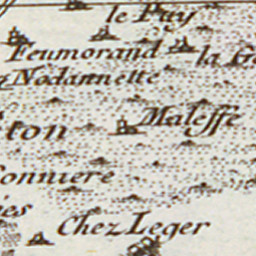 le Puy
Feumorand la Ge
Nodannette
Maleffe
ton
onniere
ies
Chez Leger